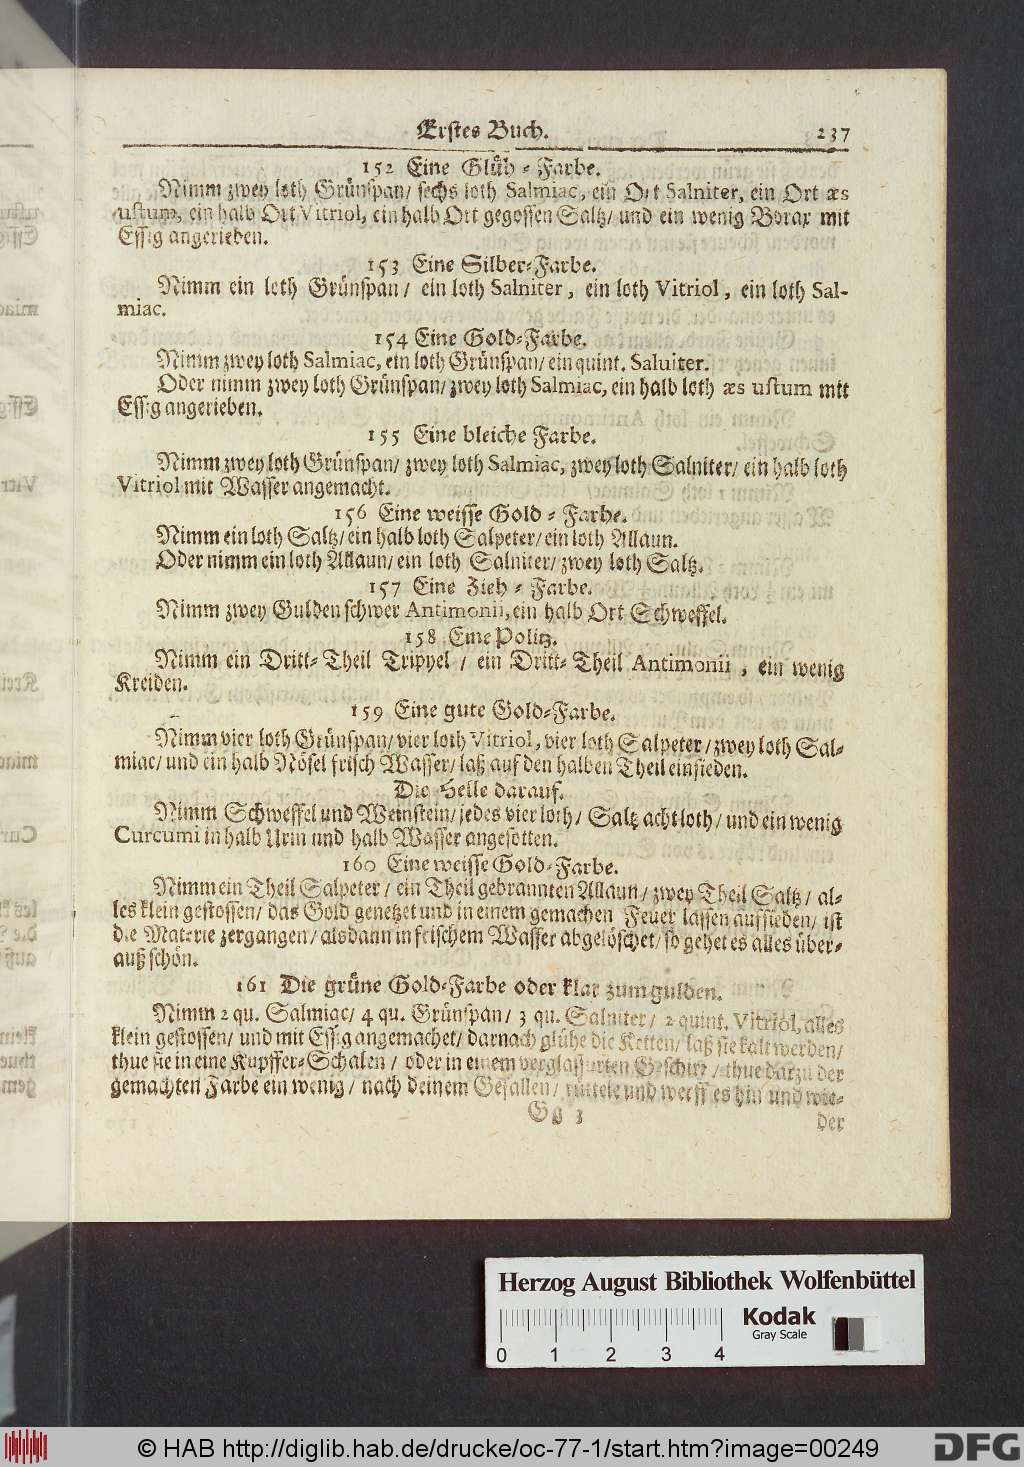 Erstes Buch. 237
152 Eine Glüh-Farbe.
Nimm zwey loth Grünspan/ sechs loth Salmiac, ein Ort Salniter, ein Ort æs
ustum, ein halb Ort Vitriol, ein halb Ort gegossen Saltz/ und ein wenig Borax mit
Essig angerieben.
153 Eine Silber-Farbe.
Nimm ein loth Grünspan/ ein loth Salniter, ein loth Vitriol, ein loth Sal-
miac.
154 Eine Gold-Farbe.
Nimm zwey loth Salmiac, ein loth Grünspan/ ein quint. Saluiter.
Oder nimm zwey loth Grünspan/ zwey loth Salmiac, ein halb loth æs ustum mit
Essig angerieben.
155 Eine bleiche Farbe.
Nimm zwey loth Grünspan/ zwey loth Salmiac, zwey loth Salniter/ ein halb loth
Vitriol mit Wasser angemacht.
156 Eine weisse Gold-Farbe.
Nimm ein loth Saltz/ ein halb loth Salpeter/ ein loth Allaun.
Oder nimm ein loth Allaun/ ein loth Salniter/ zwey loth Saltz.
157 Eine Zieh-Farbe.
Nimm zwey Gulden schwer Antimonii, ein halb Ort Schweffel.
158 Eine Politz.
Nimm ein Dritt-Theil Trippel / ein Dritt-Theil Antimonii, ein wenig
Kreiden.
159 Eine gute Gold-Farbe.
Nimm vier loth Grünspan/ vier loth Vitriol, vier loth Salpeter/ zwey loth Sal-
miac/ und ein halb Nösel frisch Wasser/ laß auf den halben Theil einsieden.
Die Helle darauf.
Nimm Schweffel und Weinstein/ jedes vier loth/ Saltz acht loth/ und ein wenig
Curcumi in halb Urin und halb Wasser angesotten.
160 Eine weisse Gold-Farbe.
Nimm ein Theil Salpeter/ ein Theil gebrannten Allaun/ zwey Theil Saltz/ al-
les klein gestossen/ das Gold genetzet und in einem gemachen Feuer lassen aufsieden/ ist
die Materie zergangen/ alsdann in frischem Wasser abgelöschet/ so gehet es alles über-
auß schön.
161 Die grüne Gold-Farbe oder klar zum gulden.
Nimm 2 qu. Salmiac/ 4 qu. Grünspan/ 3 qu. Salniter/ 2 quint. Vitriol, alles
klein gestossen/ und mit Essig angemachet/ darnach glühe die Ketten/ laß sie kalt werden/
thue sie in eine Kupffer-Schalen / oder in einem verglassurten Geschirr/ thue darzu der
gemachten Farbe ein wenig/ nach deinem Gefallen/ rüttele und werff es hin und wie-
Gg 3 der
Herzog August Bibliothek Wolfenbüttel
Kodak
Gray Scale
0 1 2 3 4
© HAB http://diglib.hab.de/drucke/oc-77-1/start.htm?image=00249
DFG